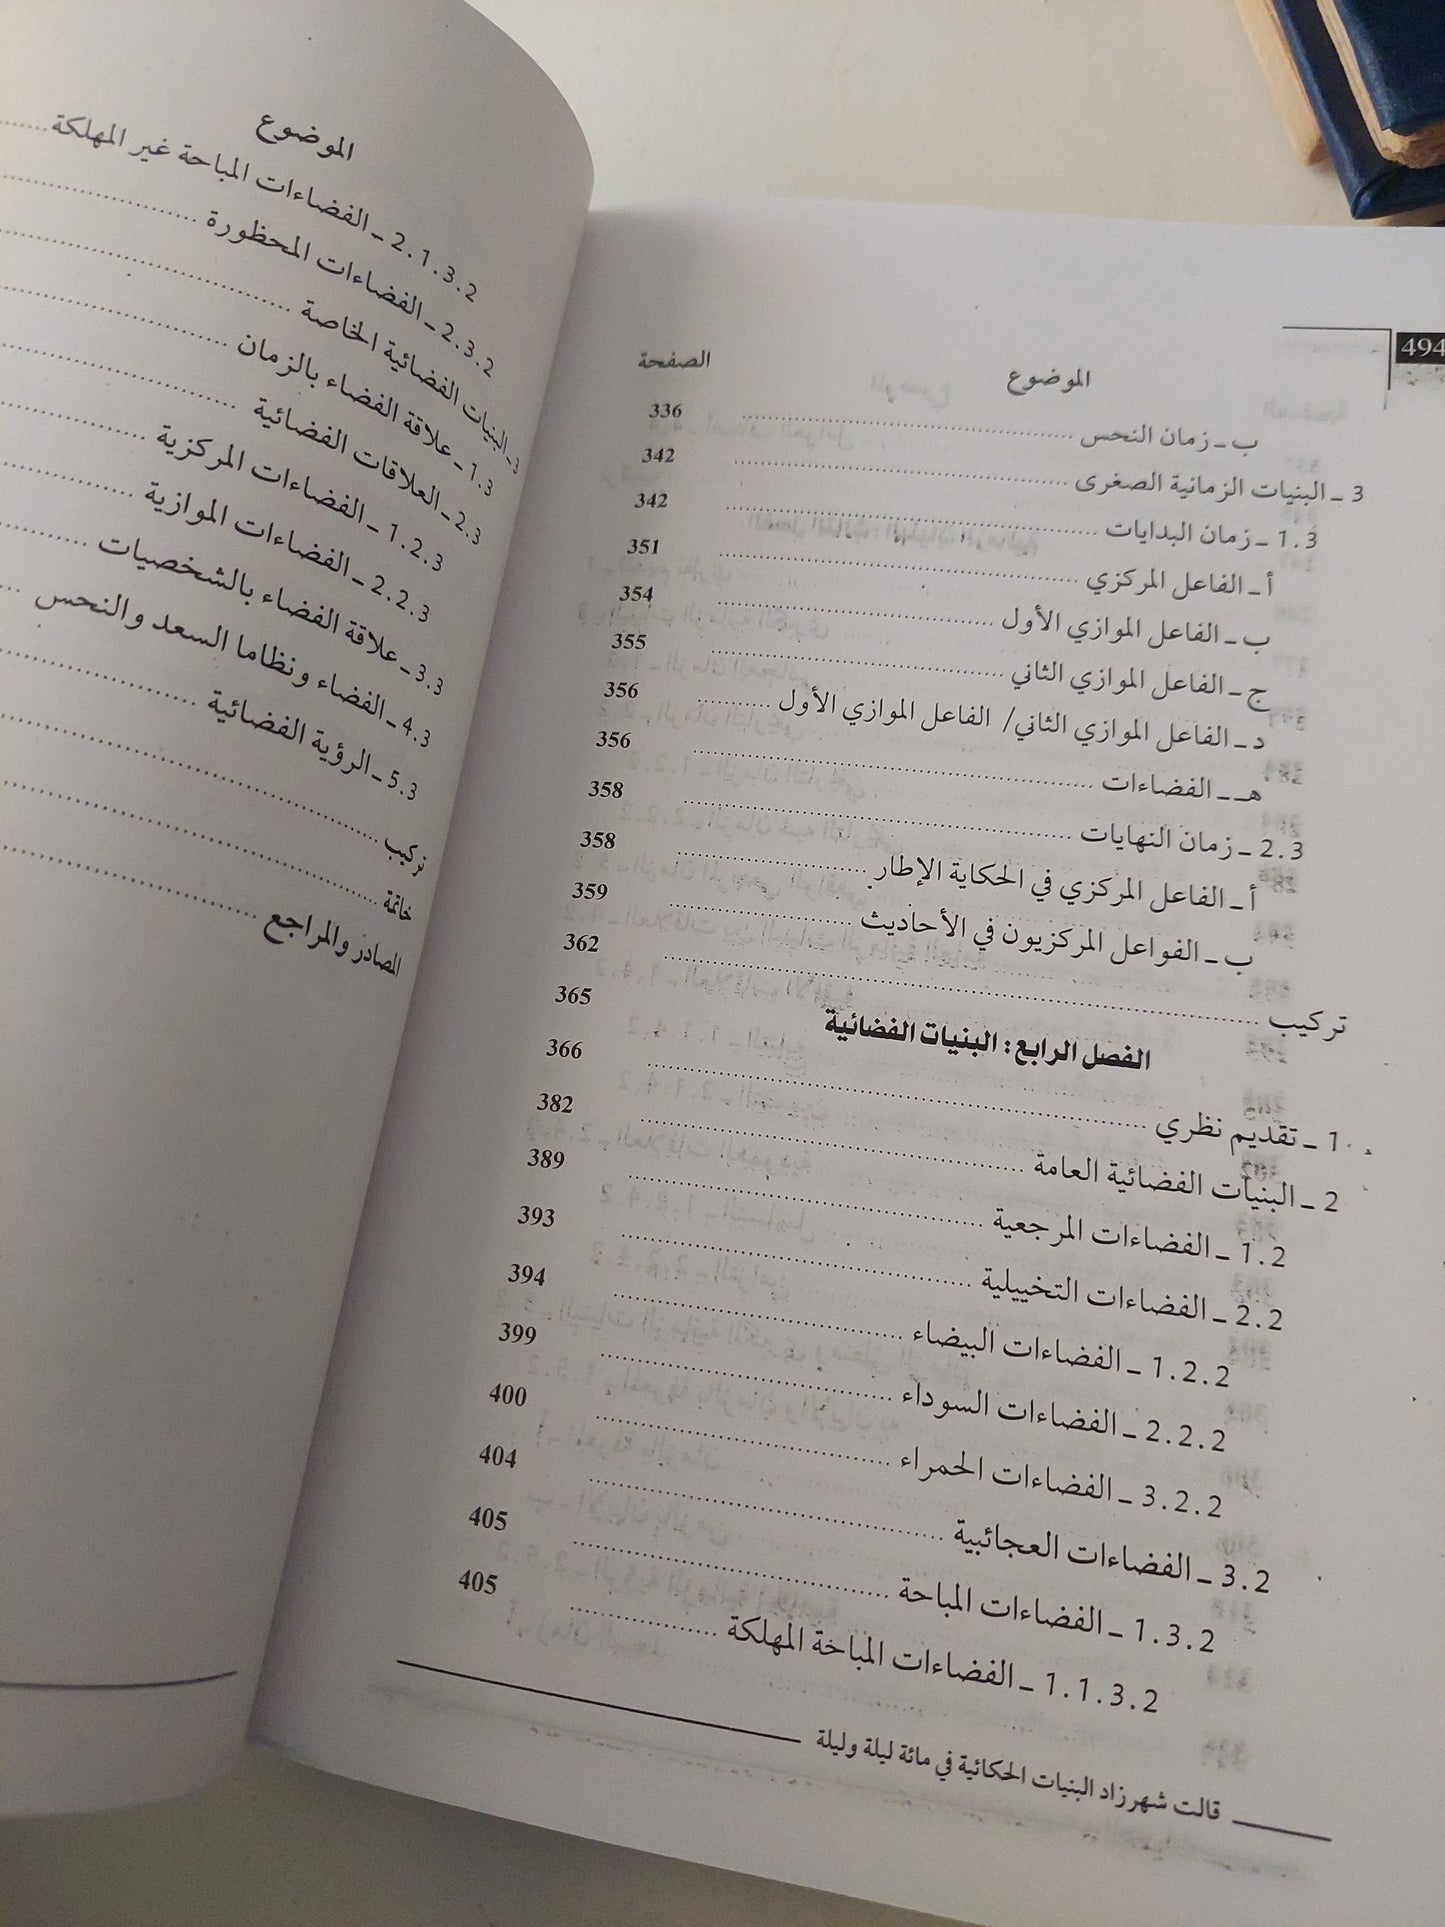 494
الموضوع الصفحة
ب ـ زمان النحس ........ 336
3 ـ البنيات الزمانية الصغرى ........ 342
1.3 ـ زمان البدايات ........ 342
أ ـ الفاعل المركزي ........ 351
ب ـ الفاعل الموازي الأول ........ 354
ج ـ الفاعل الموازي الثاني ........ 355
د ـ الفاعل الموازي الثاني/ الفاعل الموازي الأول ........ 356
هـ ـ الفضاءات ........ 356
2.3 ـ زمان النهايات ........ 358
أ ـ الفاعل المركزي في الحكاية الإطار ........ 358
ب ـ الفواعل المركزيون في الأحاديث ........ 359
تركيب ........ 362
الفصل الرابع: البنيات الفضائية 365
1 ـ تقديم نظري ........ 366
2 ـ البنيات الفضائية العامة ........ 382
1.2 ـ الفضاءات المرجعية ........ 389
2.2 ـ الفضاءات التخييلية ........ 393
1.2.2 ـ الفضاءات البيضاء ........ 394
2.2.2 ـ الفضاءات السوداء ........ 399
3.2.2 ـ الفضاءات الحمراء ........ 400
3.2 ـ الفضاءات العجائبية ........ 404
1.3.2 ـ الفضاءات المباحة ........ 405
1.1.3.2 ـ الفضاءات المباحة المهلكة ........ 405
قالت شهرزاد البنيات الحكائية في مائة ليلة وليلة
الموضوع
2.1.3.2 ـ الفضاءات المباحة غير المهلكة ........
2.3.2 ـ الفضاءات المحظورة ........
3 ـ البنيات الفضائية الخاصة ........
1.3 ـ علاقة الفضاء بالزمان ........
2.3 ـ العلاقات الفضائية ........
1.2.3 ـ الفضاءات المركزية ........
2.2.3 ـ الفضاءات الموازية ........
3.3 ـ علاقة الفضاء بالشخصيات ........
4.3 ـ الفضاء ونظاما السعد والنحس ........
5.3 ـ الرؤية الفضائية ........
تركيب ........
خاتمة ........
المصادر والمراجع ........